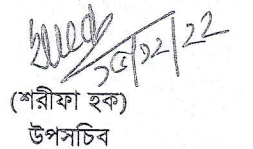 ১৫/১২/২২
(শরীফা হক)
উপসচিব